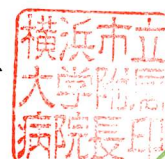 横浜市立
大学附属
病院長印